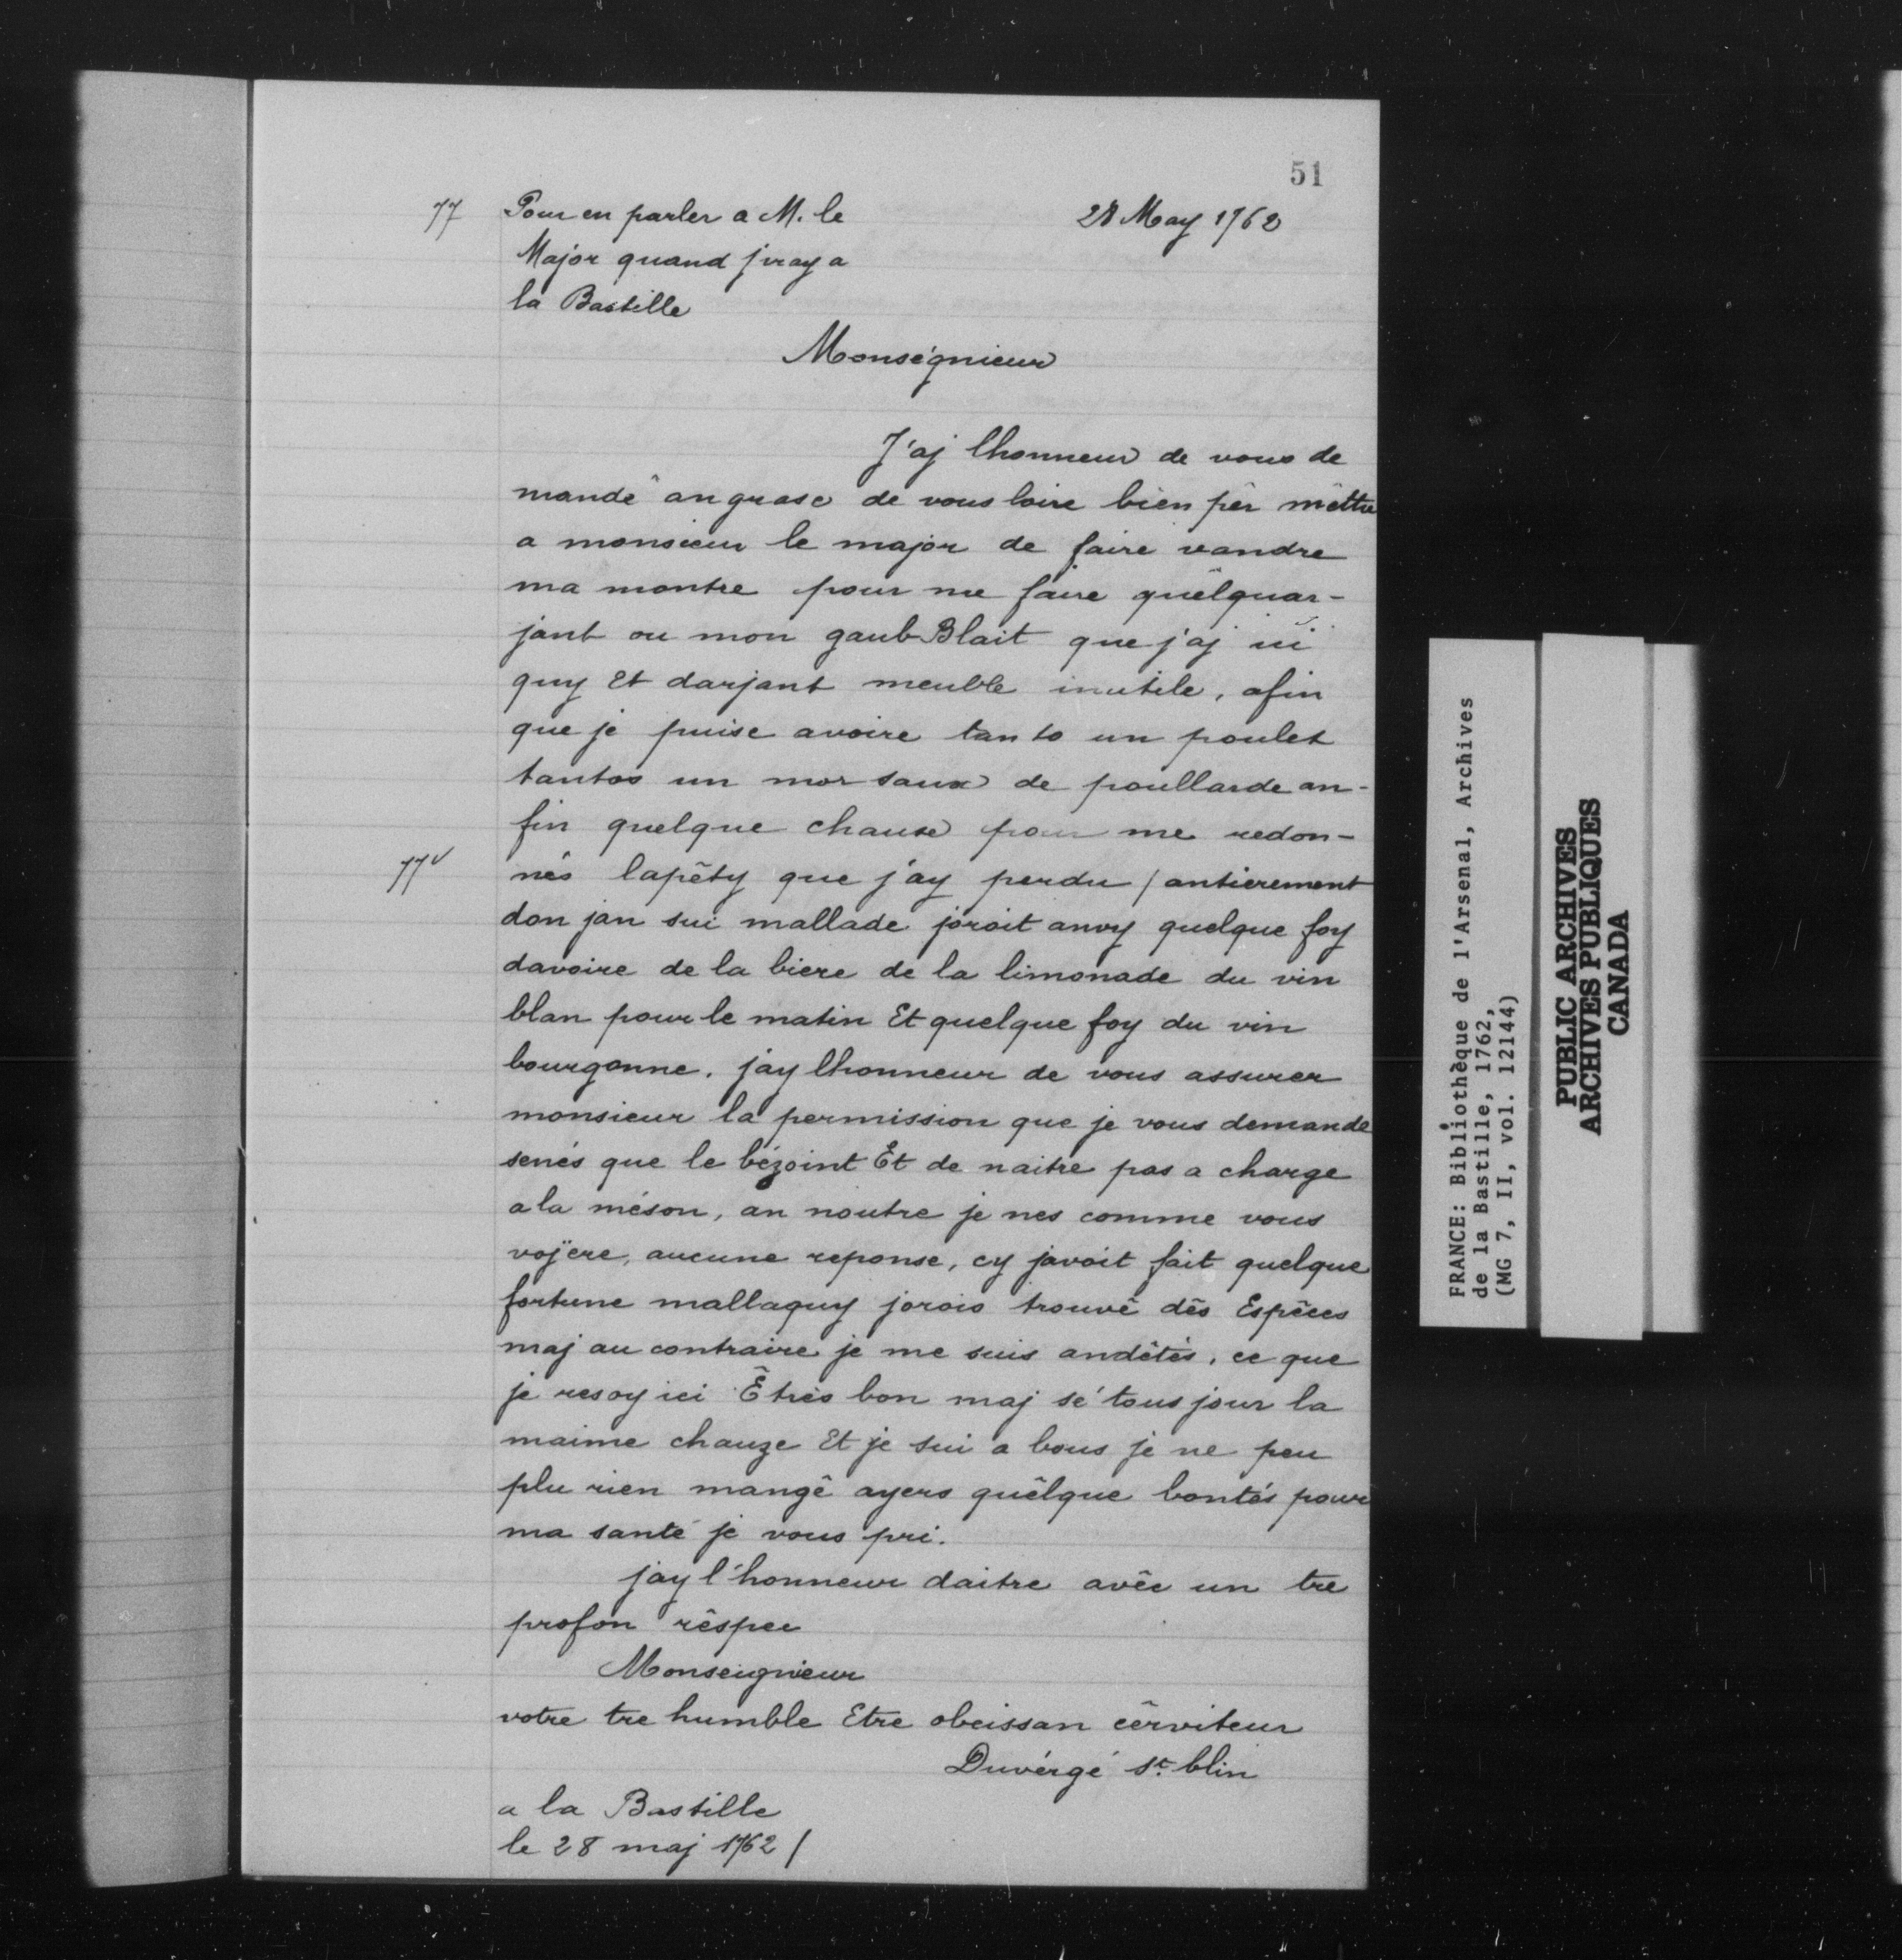 51
77 Pour en parler a M. le
28 May 1762
Major quand jiray a
la Bastille
Monségnieur
J'aj lhonneur de vous de
mandê an grase de vous loire bien pêr mêttre
a monsieur le major de faire vandre
ma montre pour me faire quêlquar-
jant ou mon gaub Blait que j'aj ici
quy Et darjant meuble inutile, afin
que je puise avoire tanto un poulet
tantos un mor saux de poullarde an-
fin quelque chause pour me redon-
77v nés lapêty que j'ay perdu / antierement
don jan sui mallade joroit anvy quelque foy
davoire de la biere de la limonade du vin
blan pour le matin Et quelque foy du vin
bourgonne. jay lhonneur de vous assurer
monsieur la permission que je vous demande
senés que le bézoint Et de naitre pas a charge
a la méson, an noutre je nes comme vous
vojere, aucune reponse, cy javoit fait quelque
fortune mallaquy jorois trouvê dês Espêces
maj au contraire je me suis andêtés, ce que
je resoy ici Ê très bon maj sé tous jour la
maime chauze Et je sui a bous je ne peu
plu rien mangê ayers quêlque bontés pour
ma santé je vous pri.
jay l'honneur daitre avêc un tre
profon rêspec
Monseignieur
votre tre humble Etre obeissan cêrviteur
Duvérgé st. blin
a la Bastille
le 28 maj 1762 /
FRANCE: Bibliothèque de l'Arsenal, Archives
de la Bastille, 1762,
(MG 7, II, vol. 12144)
PUBLIC ARCHIVES
ARCHIVES PUBLIQUES
CANADA